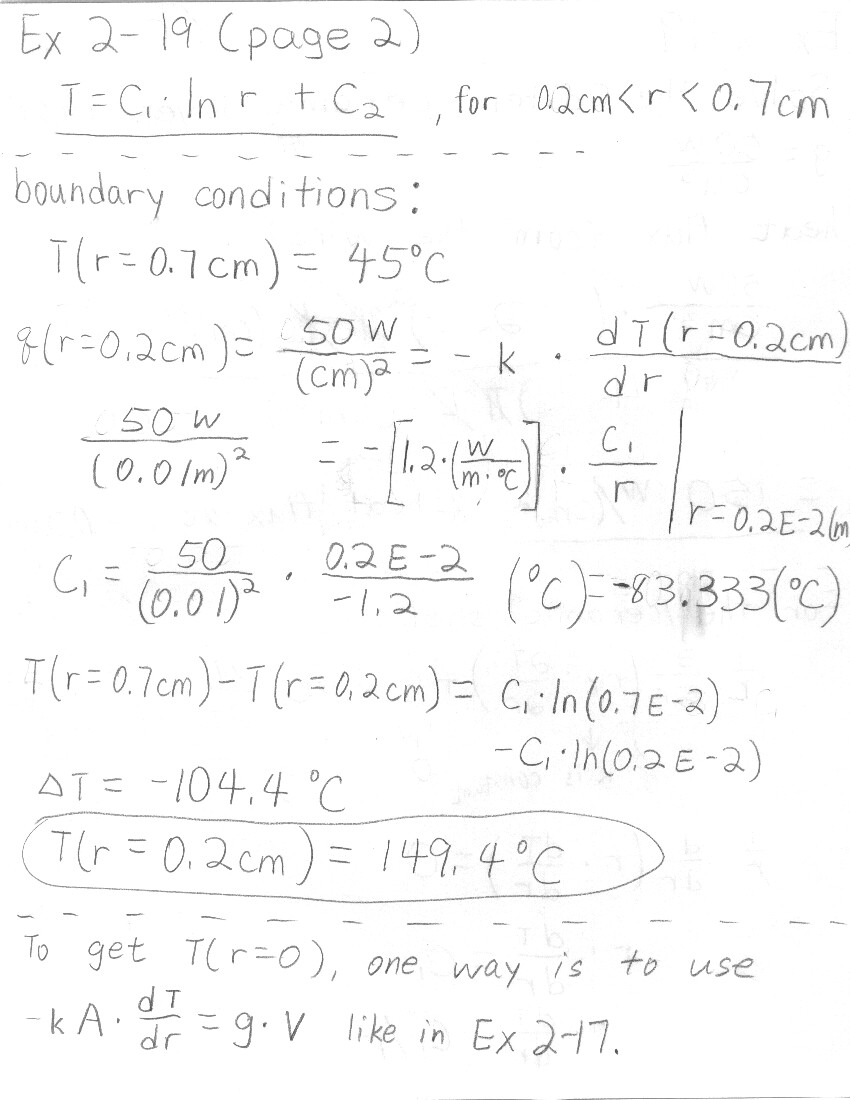 Ex 2-19 (page 2)
T = C₁·ln r + C₂ , for 0.2cm < r < 0.7cm
boundary conditions:
T(r = 0.7cm) = 45°C
q(r=0.2cm) = 50 W/(cm)² = - k · dT(r = 0.2cm)/dr
50 W/(0.01m)² = -[1.2·(W/m·°C)] · C₁/r |r=0.2E-2(m
C₁ = 50/(0.01)² · 0.2E-2/-1.2 (°C) = -83.333(°C)
T(r=0.7cm) - T(r=0.2cm) = C₁·ln(0.7E-2)
-C₁·ln(0.2E-2)
ΔT = -104.4 °C
T(r = 0.2cm) = 149.4°C
To get T(r=0), one way is to use
-kA· dT/dr = g·V like in Ex 2-17.